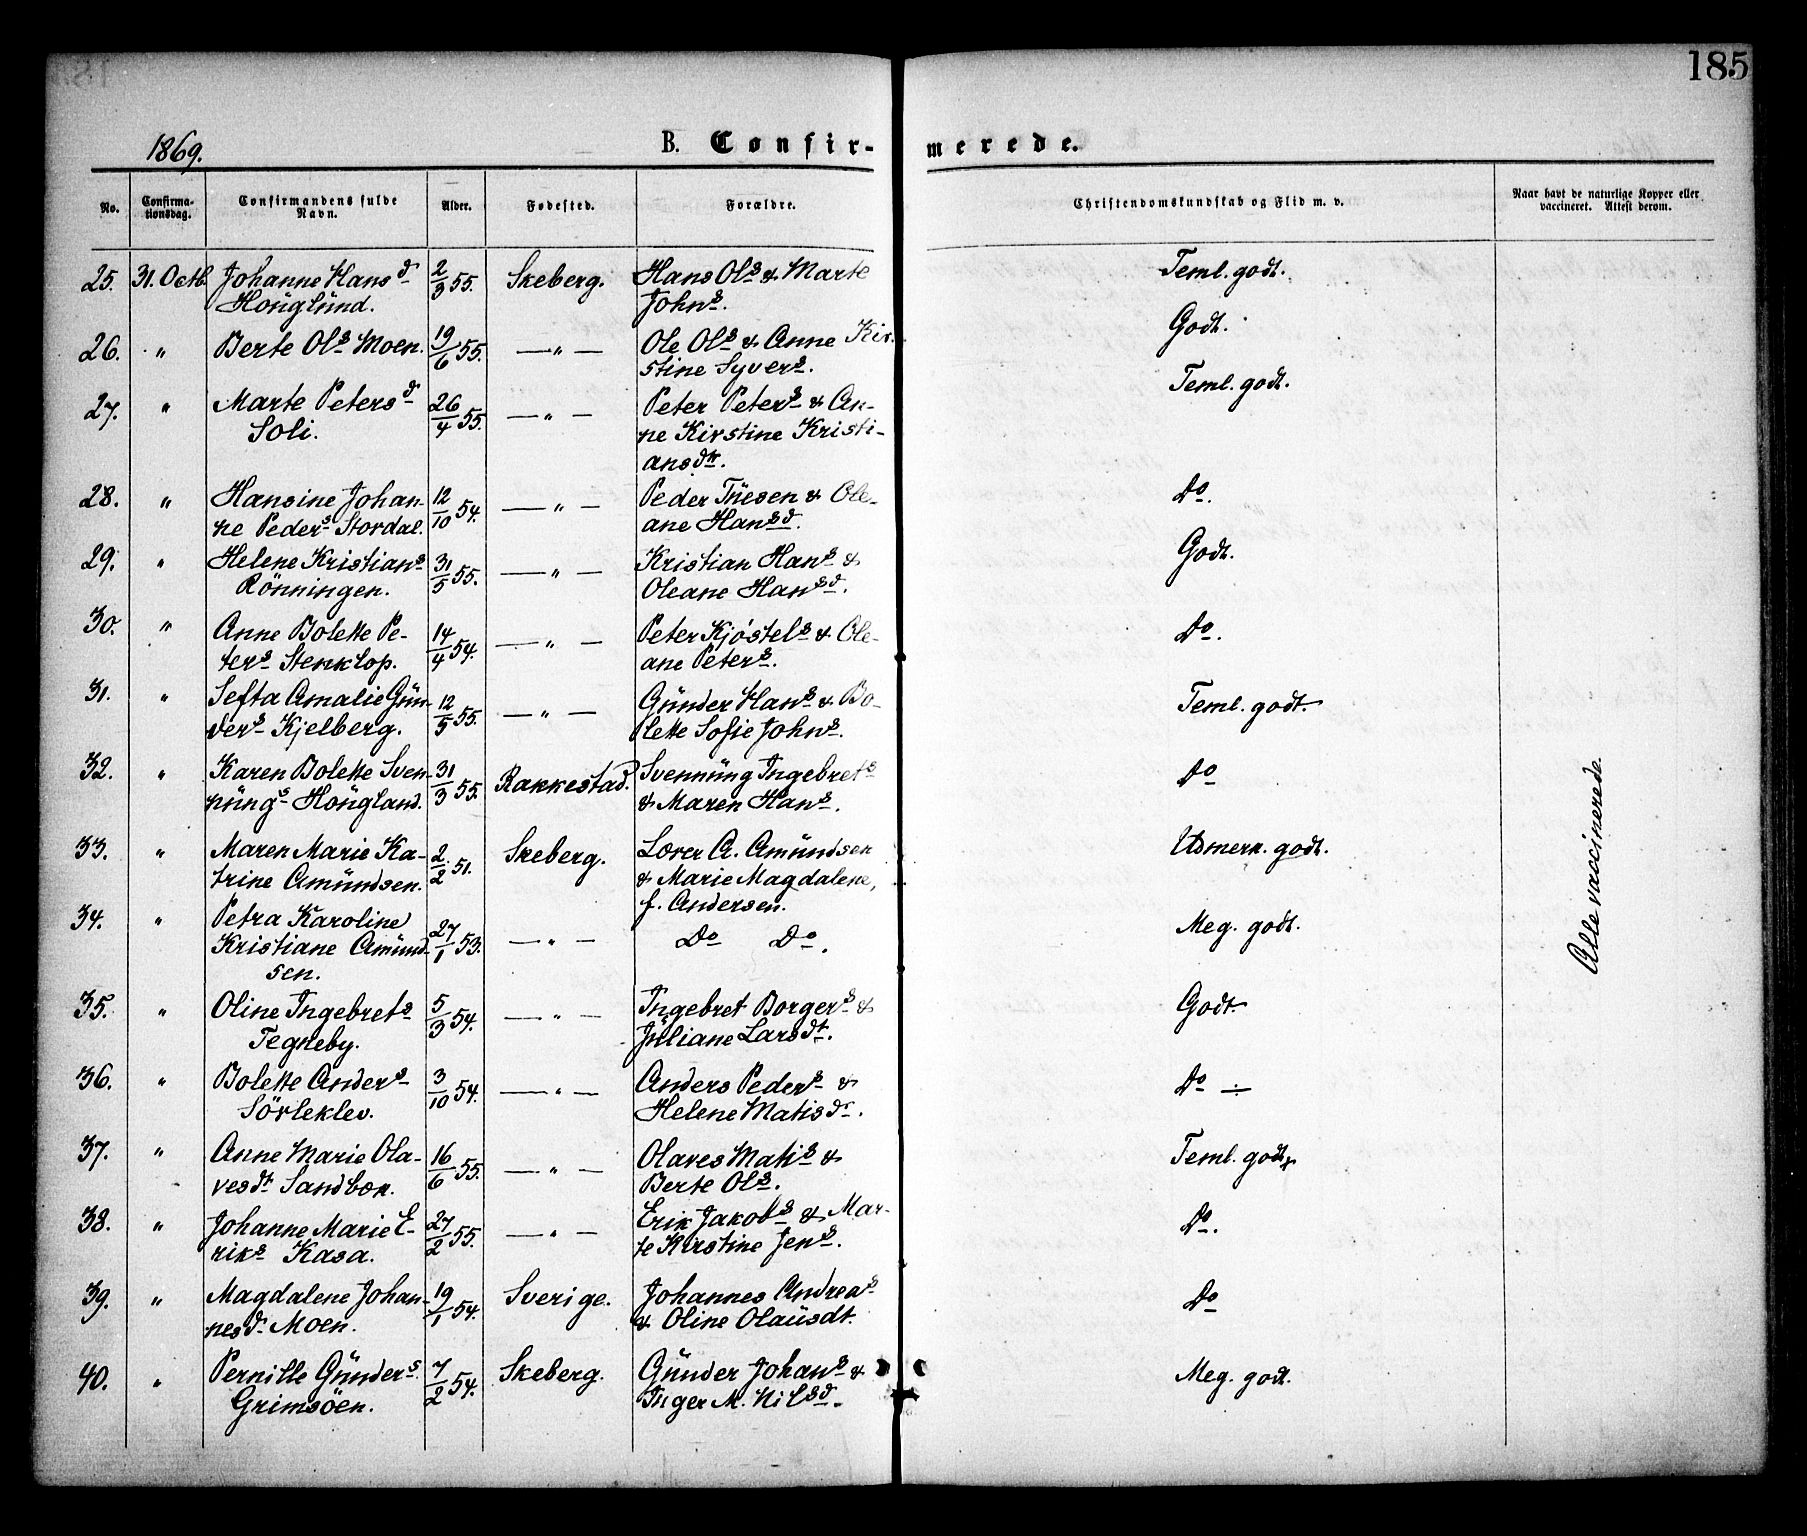 185
1869.
B. Confirmerede.
No. Confirmationsdag. Confirmandens fulde Navn. Alder. Fødested. Forældre. Christendomskundskab og Flid m. v. Naar havt de naturlige Kopper eller vaccineret. Attest derom.
25. 31. Octb. Johanne Hansd 2/3 55. Skeberg. Hans Ols & Marte Teml. godt.
Höuglund. Johns.
26. " Berte Ols Moen. 19/6 55. —"— Ole Ols & Anne Kir- Godt.
stine Syvers.
27. " Marte Petersd 26/4 55. —"— Peter Peters & An- Teml. godt.
Soli. ne Kirstine Kristi-
ansdtr.
28. " Hansine Johan- 12/10 54. —"— Peder Tüesen & Ole- Do.
ne Peders Stordal. ane Hansd.
29. " Helene Kristians 31/5 55. —"— Kristian Hans & Godt.
Rönningen. Oleane Hansd.
30. " Anne Bolette Pe- 14/4 54. —"— Peter Kjöstels & Ole- Do.
ters Stenklop. ane Peters.
31. " Sefta Amalie Gün- 12/5 55. —"— Günder Hans & Bo- Teml. godt.
ders Kjelberg. lette Sofie Johns.
32. " Karen Bolette Sven- 31/3 55. Rakkestad. Svennüng Ingebrets Do
nüngs Höugland. & Maren Hans.
33. " Maren Marie Ka- 2/2 51. Skeberg. Lærer A. Amündsen Udmerk. godt.
trine Amündsen. & Marie Magdalene,
f. Andersen.
34. " Petra Karoline 27/1 53. —"— Do Do. Meg. godt.
Kristiane Amünd-
sen.
35. " Oline Ingebrets 5/3 54. —"— Ingebret Borgers & Godt.
Tegneby. Jüliane Larsdt.
36. " Bolette Anders 3/10 54. —"— Anders Peders & Do ÷
Sörleklev. Helene Matisdr.
37. " Anne Marie Ola- 16/6 55. —"— Olaves Matis & Teml. godt.
vesdt Sandbæk. Berte Ols.
38. " Johanne Marie E- 27/2 55. —"— Erik Jakobs & Mar- Do.
riks Kasa. te Kirstine Jens.
39. " Magdalene Johan- 19/1 54. Sverige. Johannes Andreas Do
nesd. Moen. & Oline Olaüsdt.
40. " Pernille Günders. 7/2 54. Skeberg. Günder Johans & Meg. godt.
Grimsöen. Inger M. Nilsd.
Alle vaccinerede.